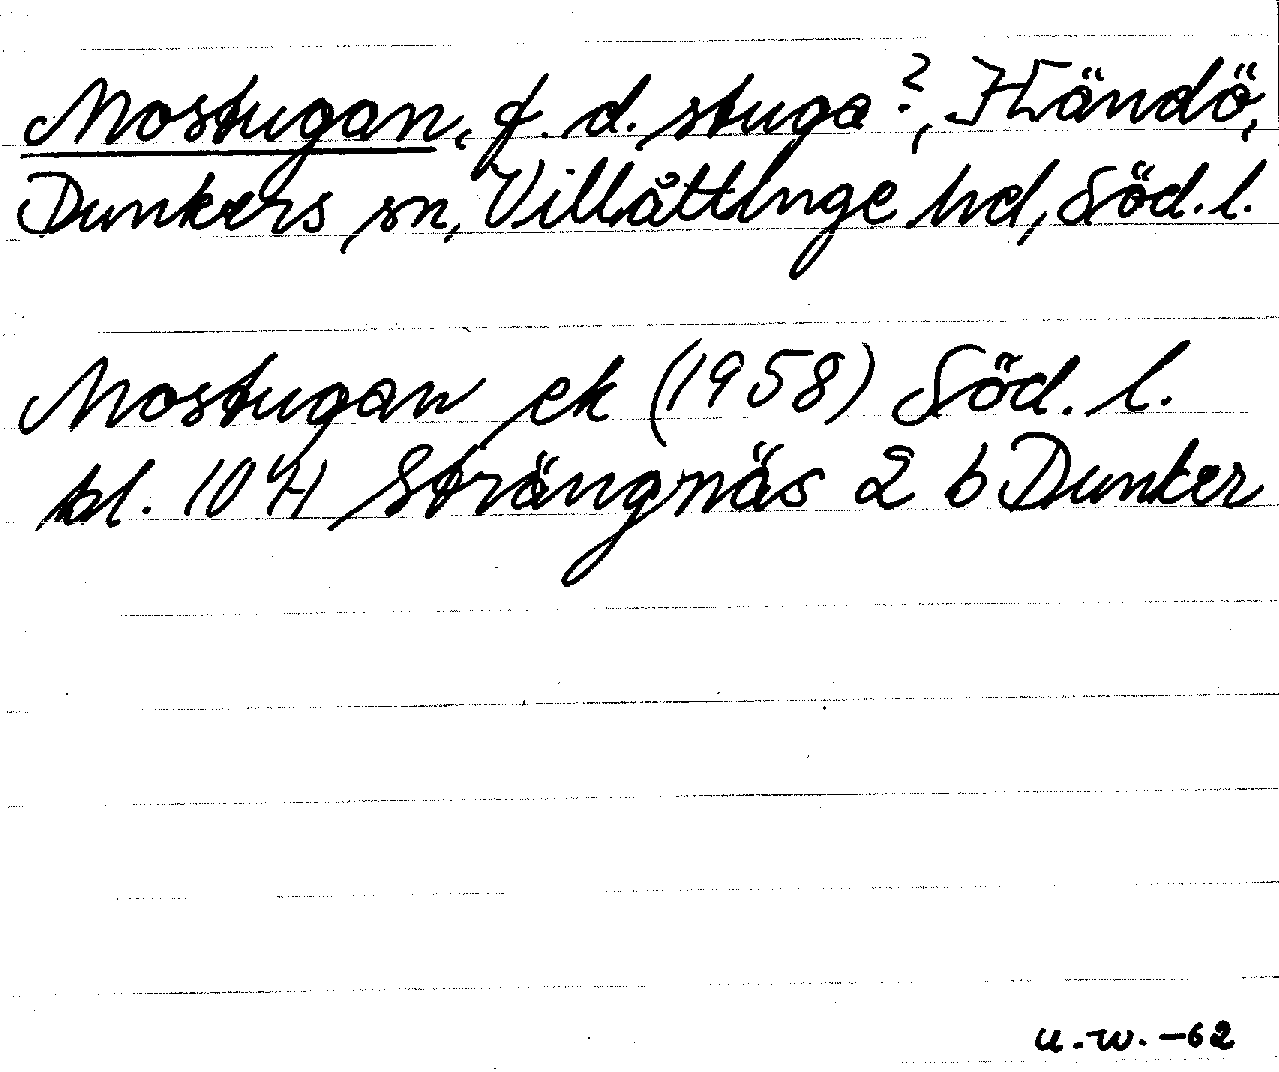 Mostugan, f. d. stuga?, Händö,
Dunkers sn, Villåttinge hd, Söd. l.
Mostugan ek (1958) Söd. l.
bl. 10 H Strängnäs 2 b Dunker
u.w. -62